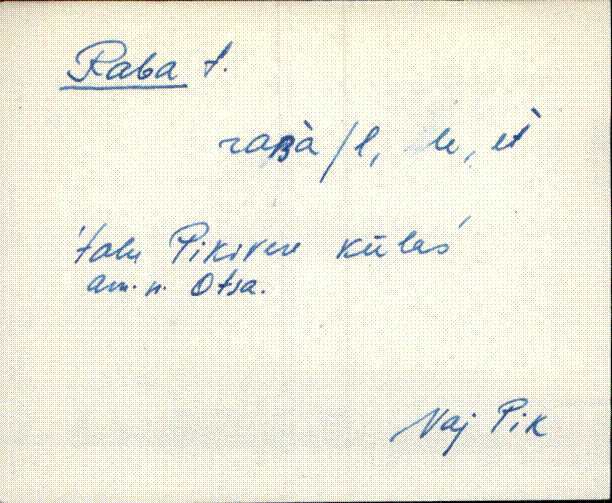 Raba t.
raʙà / l, le, et̀
'talu Pikivere külas'
am. n. Otsa.
Vaj Pik